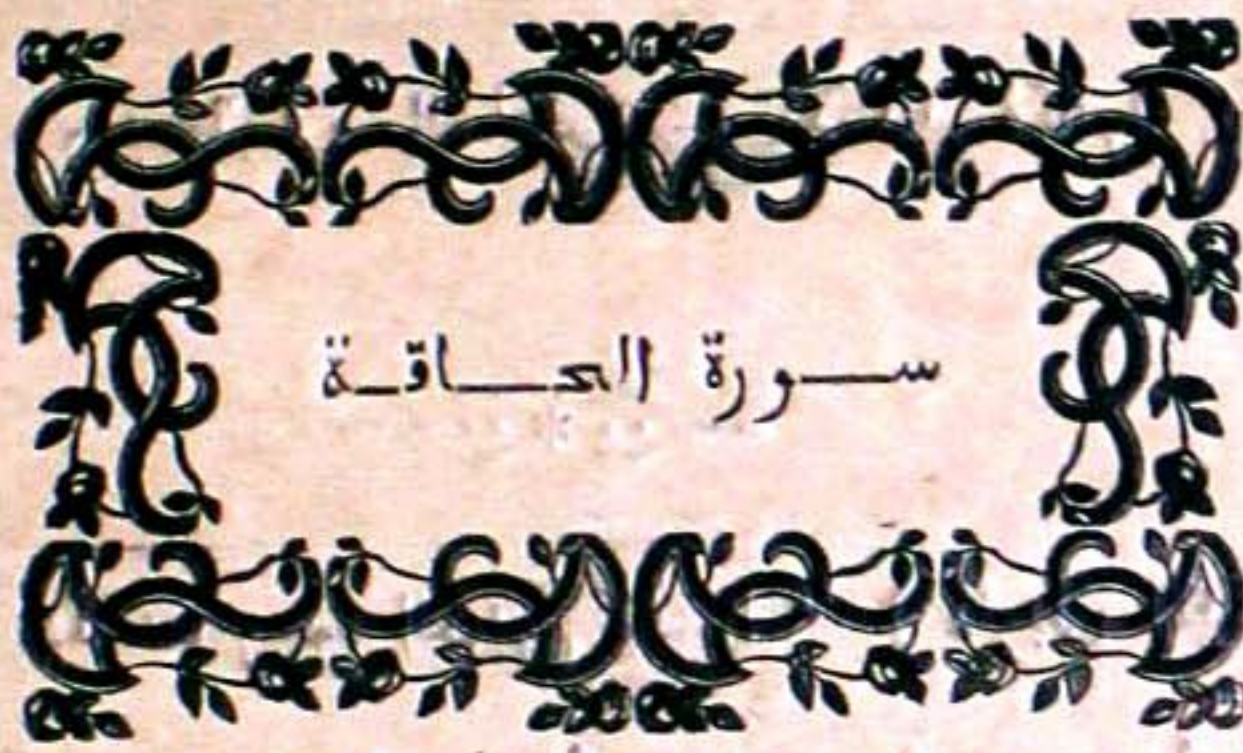 سورة الحاقة